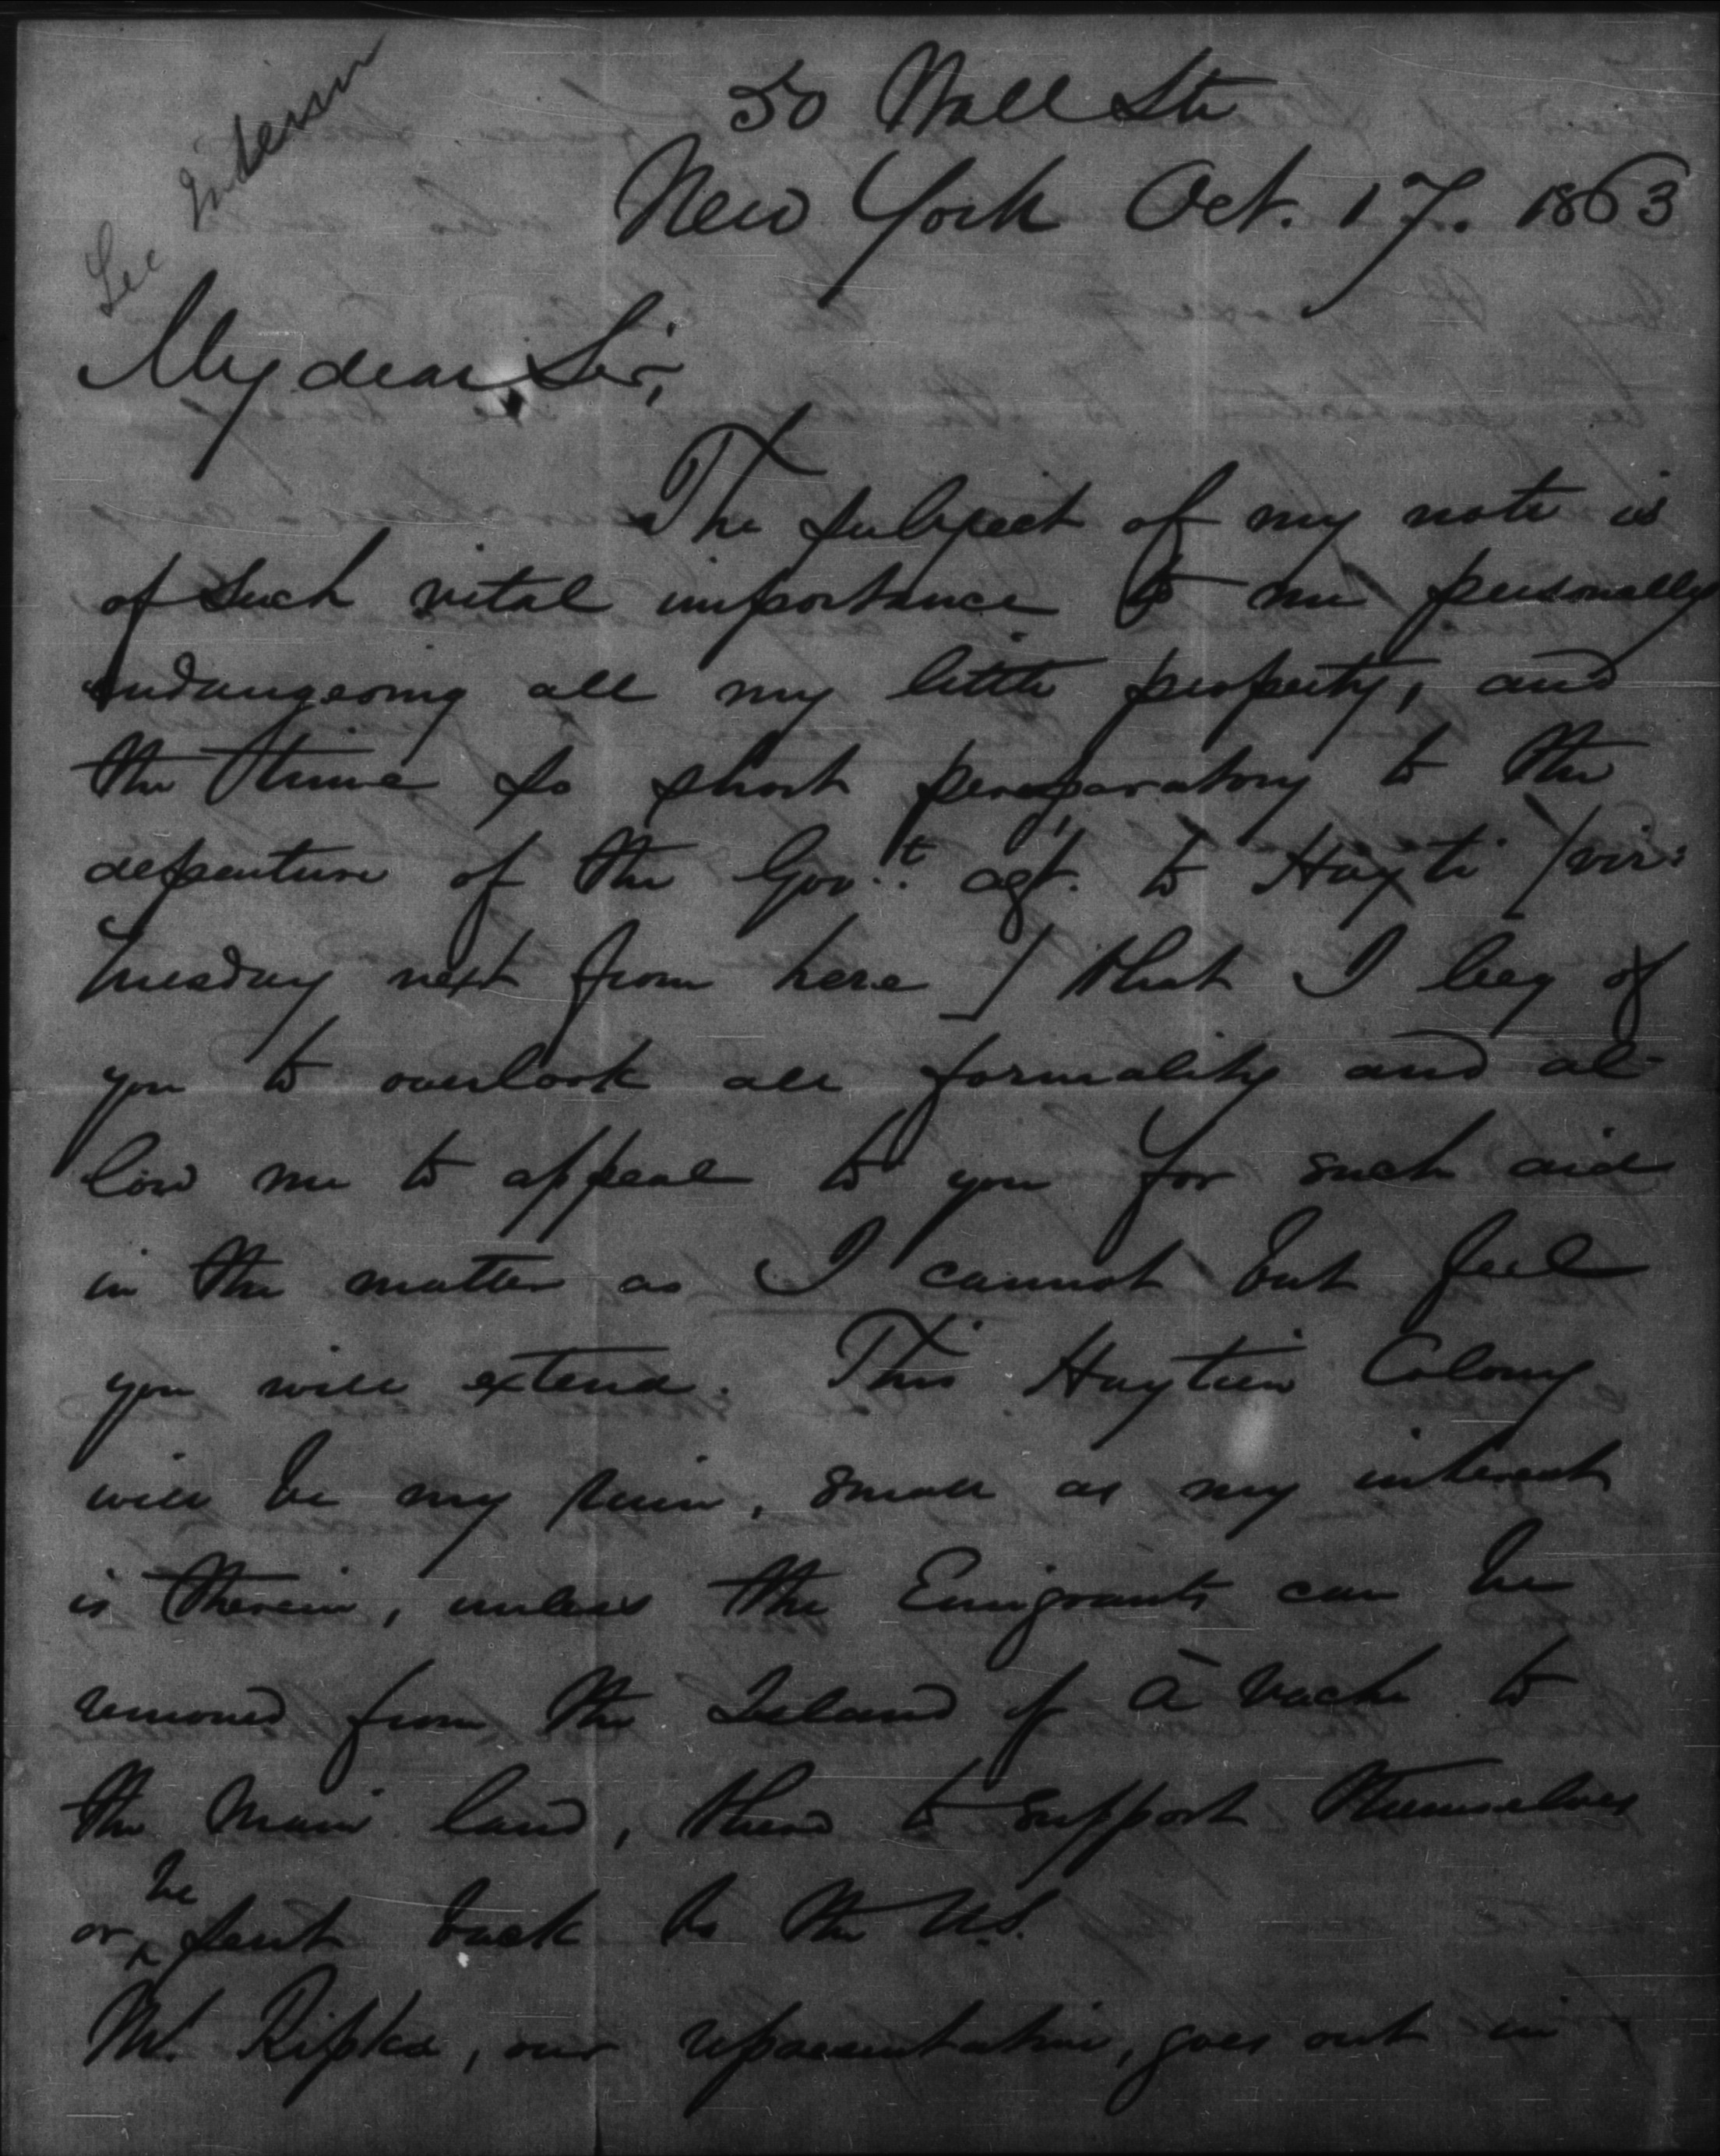 50 Wall Str
New York Oct. 17. 1863
My dear Sir,
The subject of my note is
of such vital importance to me personally
endangering all my little property, and
the time so short preparatory to the
departure of the Gov.t agt. to Hayti [viz:
Tuesday next from here] that I beg of
you to overlook all formality and al-
low me to appeal to you for such aid
in the matter as I cannot but feel
you will extend. This Haytien Colony
will be my ruin, small as my interest
is therein, unless the Emigrants can be
removed from the Island of A Vache to
the main land, there to support themselves
or be sent back to the U.S.
Mr. Ripka, our representative, goes out in